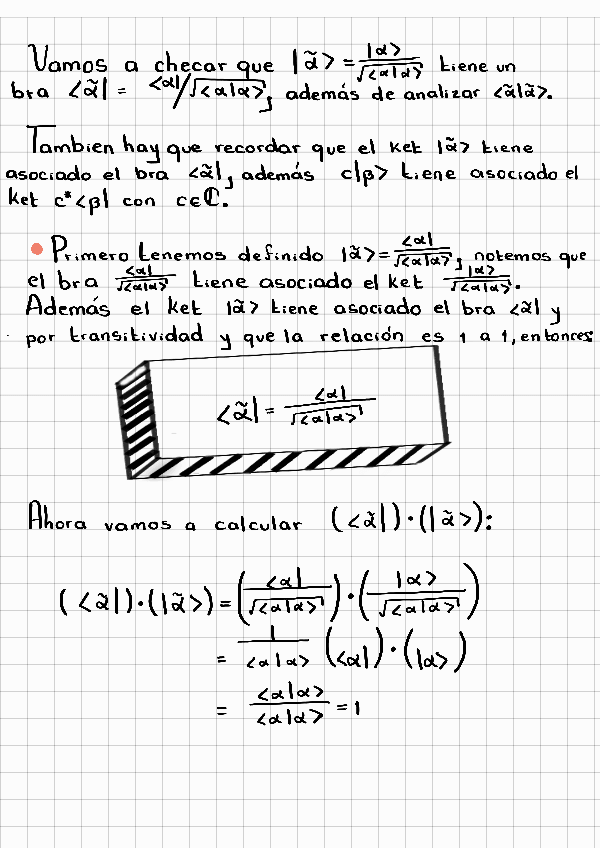 Vamos a checar que |α̃> = |α>/√<α|α> tiene un
bra <α̃| = <α|/√<α|α>, además de analizar <α̃|α̃>.
Tambien hay que recordar que el ket |α̃> tiene
asociado el bra <α̃|, además c|β> tiene asociado el
ket c*<β| con c∈ℂ.
• Primero tenemos definido |α̃> = <α|/√<α|α>, notemos que
el bra <α|/√<α|α> tiene asociado el ket |α>/√<α|α>.
Además el ket |α̃> tiene asociado el bra <α̃| y
por transitividad y que la relación es 1 a 1, entonces:
<α̃| = <α|/√<α|α>
Ahora vamos a calcular (<α̃|)·(|α̃>):
(<α̃|)·(|α̃>) = (<α|/√<α|α>)·(|α>/√<α|α>)
= 1/<α|α> (<α|)·(|α>)
= <α|α>/<α|α> = 1